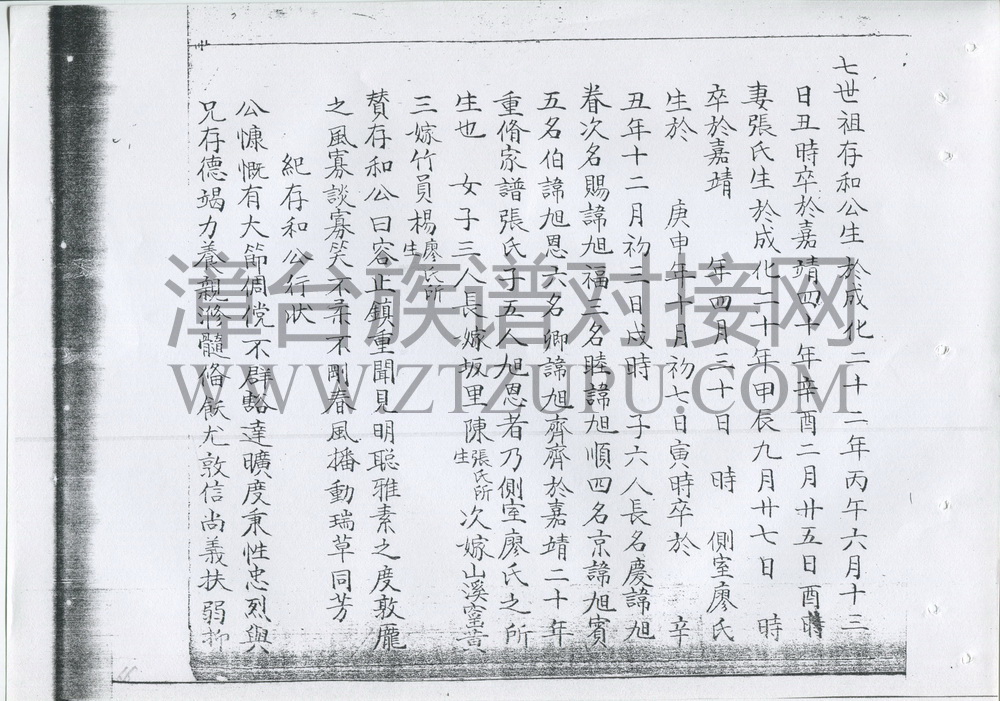 七世祖存和公生於成化二十二年丙午六月十三
日丑時卒於嘉靖四十年辛酉二月廿五日酉時
妻張氏生於成化二十年甲辰九月廿七日 時
卒於嘉靖 年四月三十日 時 側室廖氏
生於 庚申年十月初七日寅時卒於 辛
丑年十二月初三日戌時 子六人長名慶諱旭
眷次名賜諱旭福三名睦諱旭順四名京諱旭賓
五名伯諱旭恩六名卿諱旭齊齊於嘉靖二十年
重脩家譜張氏子五人旭恩者乃側室廖氏之所
生也 女子三人長嫁坂里陳張氏所生 次嫁山溪黃
三嫁竹員楊廖氏所生
贊存和公曰容止鎮重聞見明聪雅素之度敦龐
之風寡談寡笑不柔不剛春風播動瑞草同芳
紀存和公行状
公慷慨有大節倜儻不群豁達曠度秉性忠烈與
兄存德竭力養親滫髓脩飲尤敦信尚義扶弱抑
漳台族谱对接网
WWW.ZTZUPU.COM